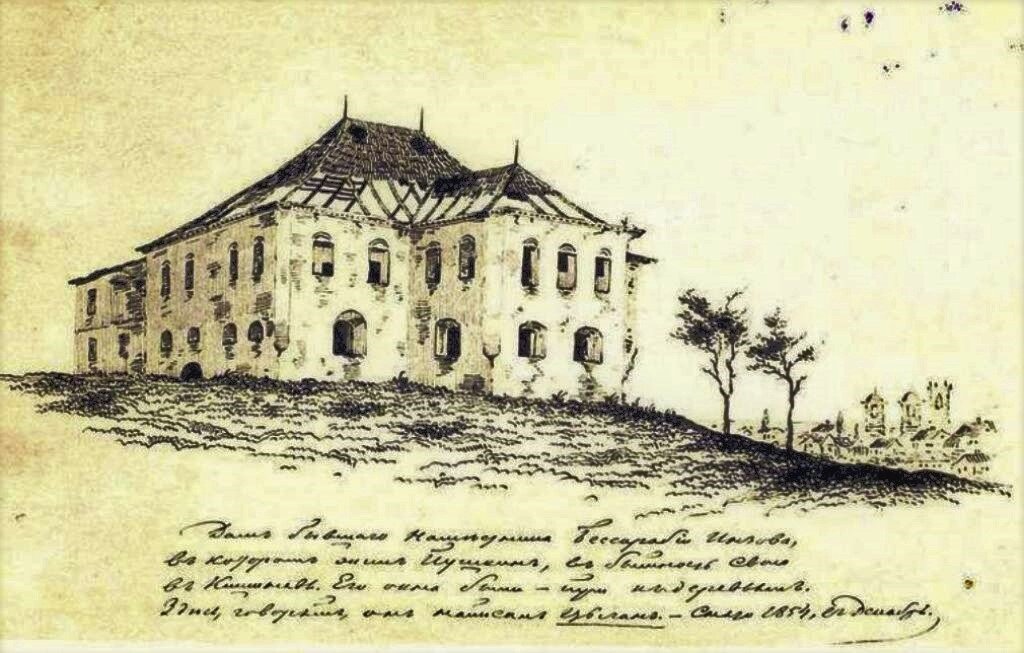 Домъ бывшаго намѣстника Бессарабіи Инзова,
въ которомъ жилъ Пушкинъ, въ бытность свою
въ Кишиневѣ. Его окна были – три къ деревьямъ.
Здѣсь, говорятъ, онъ написалъ Цыганъ. – Снято 1854, въ Декабрѣ.